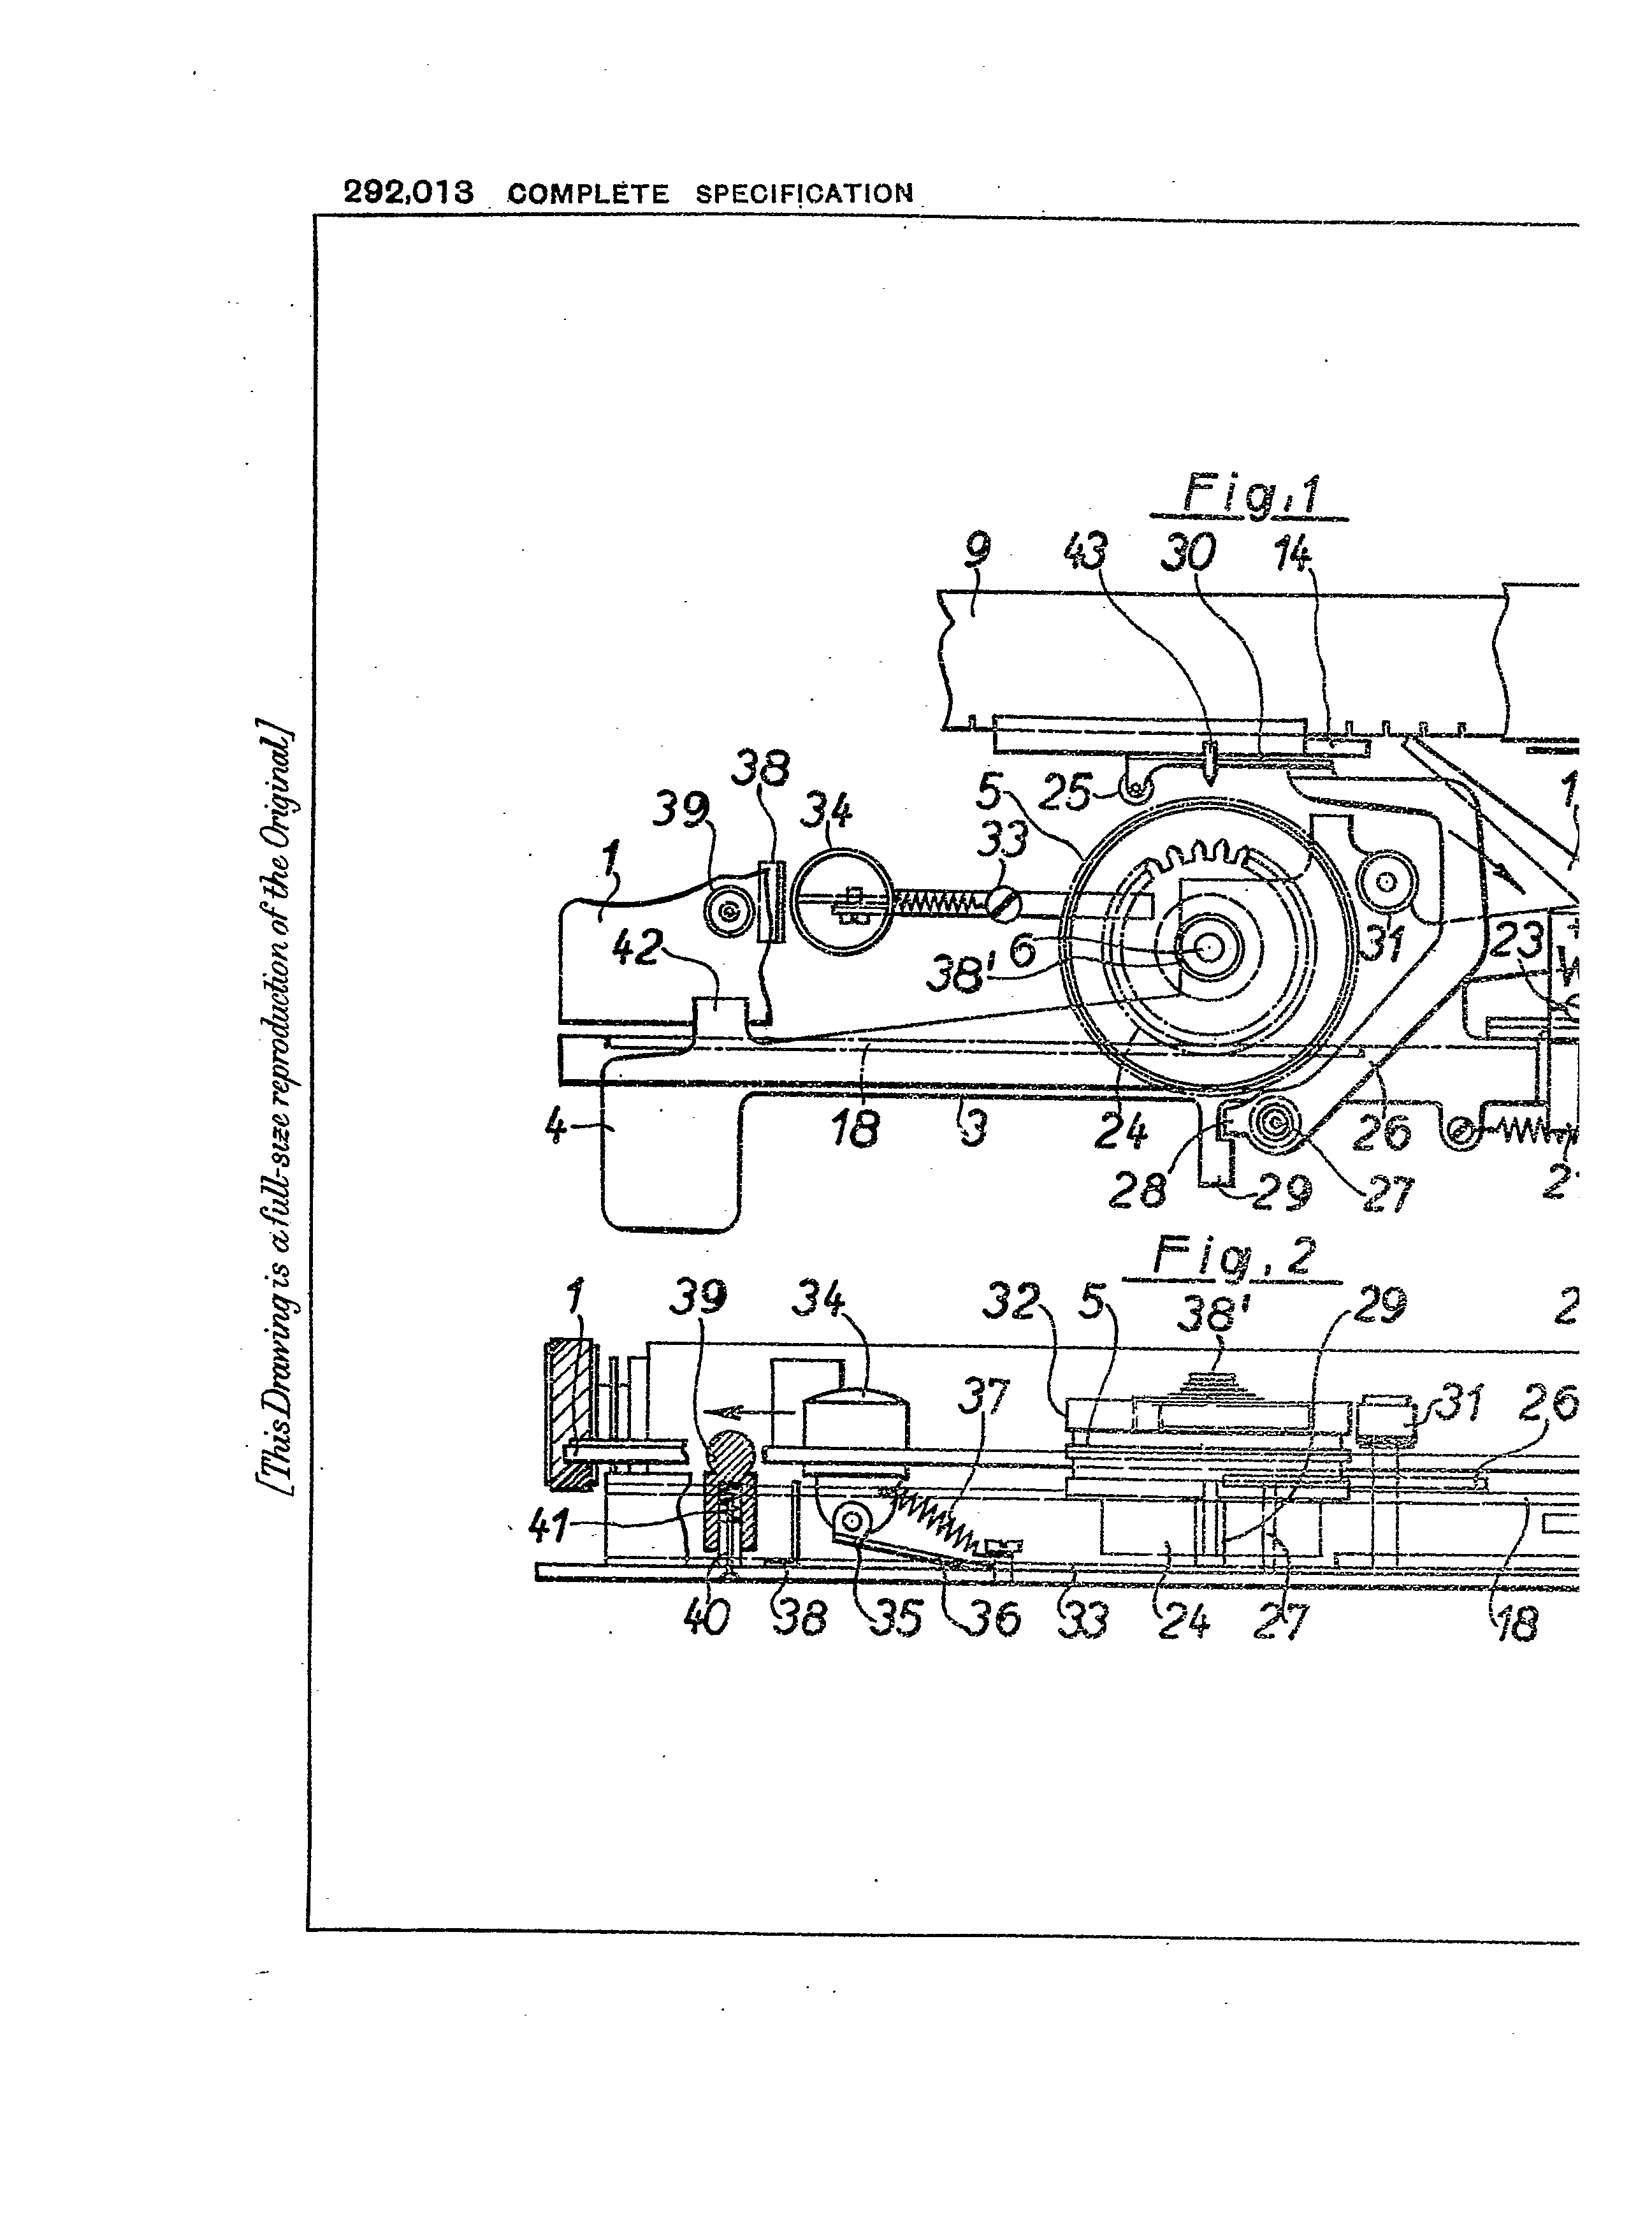 292,013 COMPLETE SPECIFICATION
[This Drawing is a full-size reproduction of the Original]
Fig. 1
9 43 30 14
38 5 25
39 34 33
1
42 6 31 23
38'
4 18 3 24 26
28 29 27
Fig. 2
1 39 34 32 5 38' 29
37 31 26
41
40 38 35 36 33 24 27 18